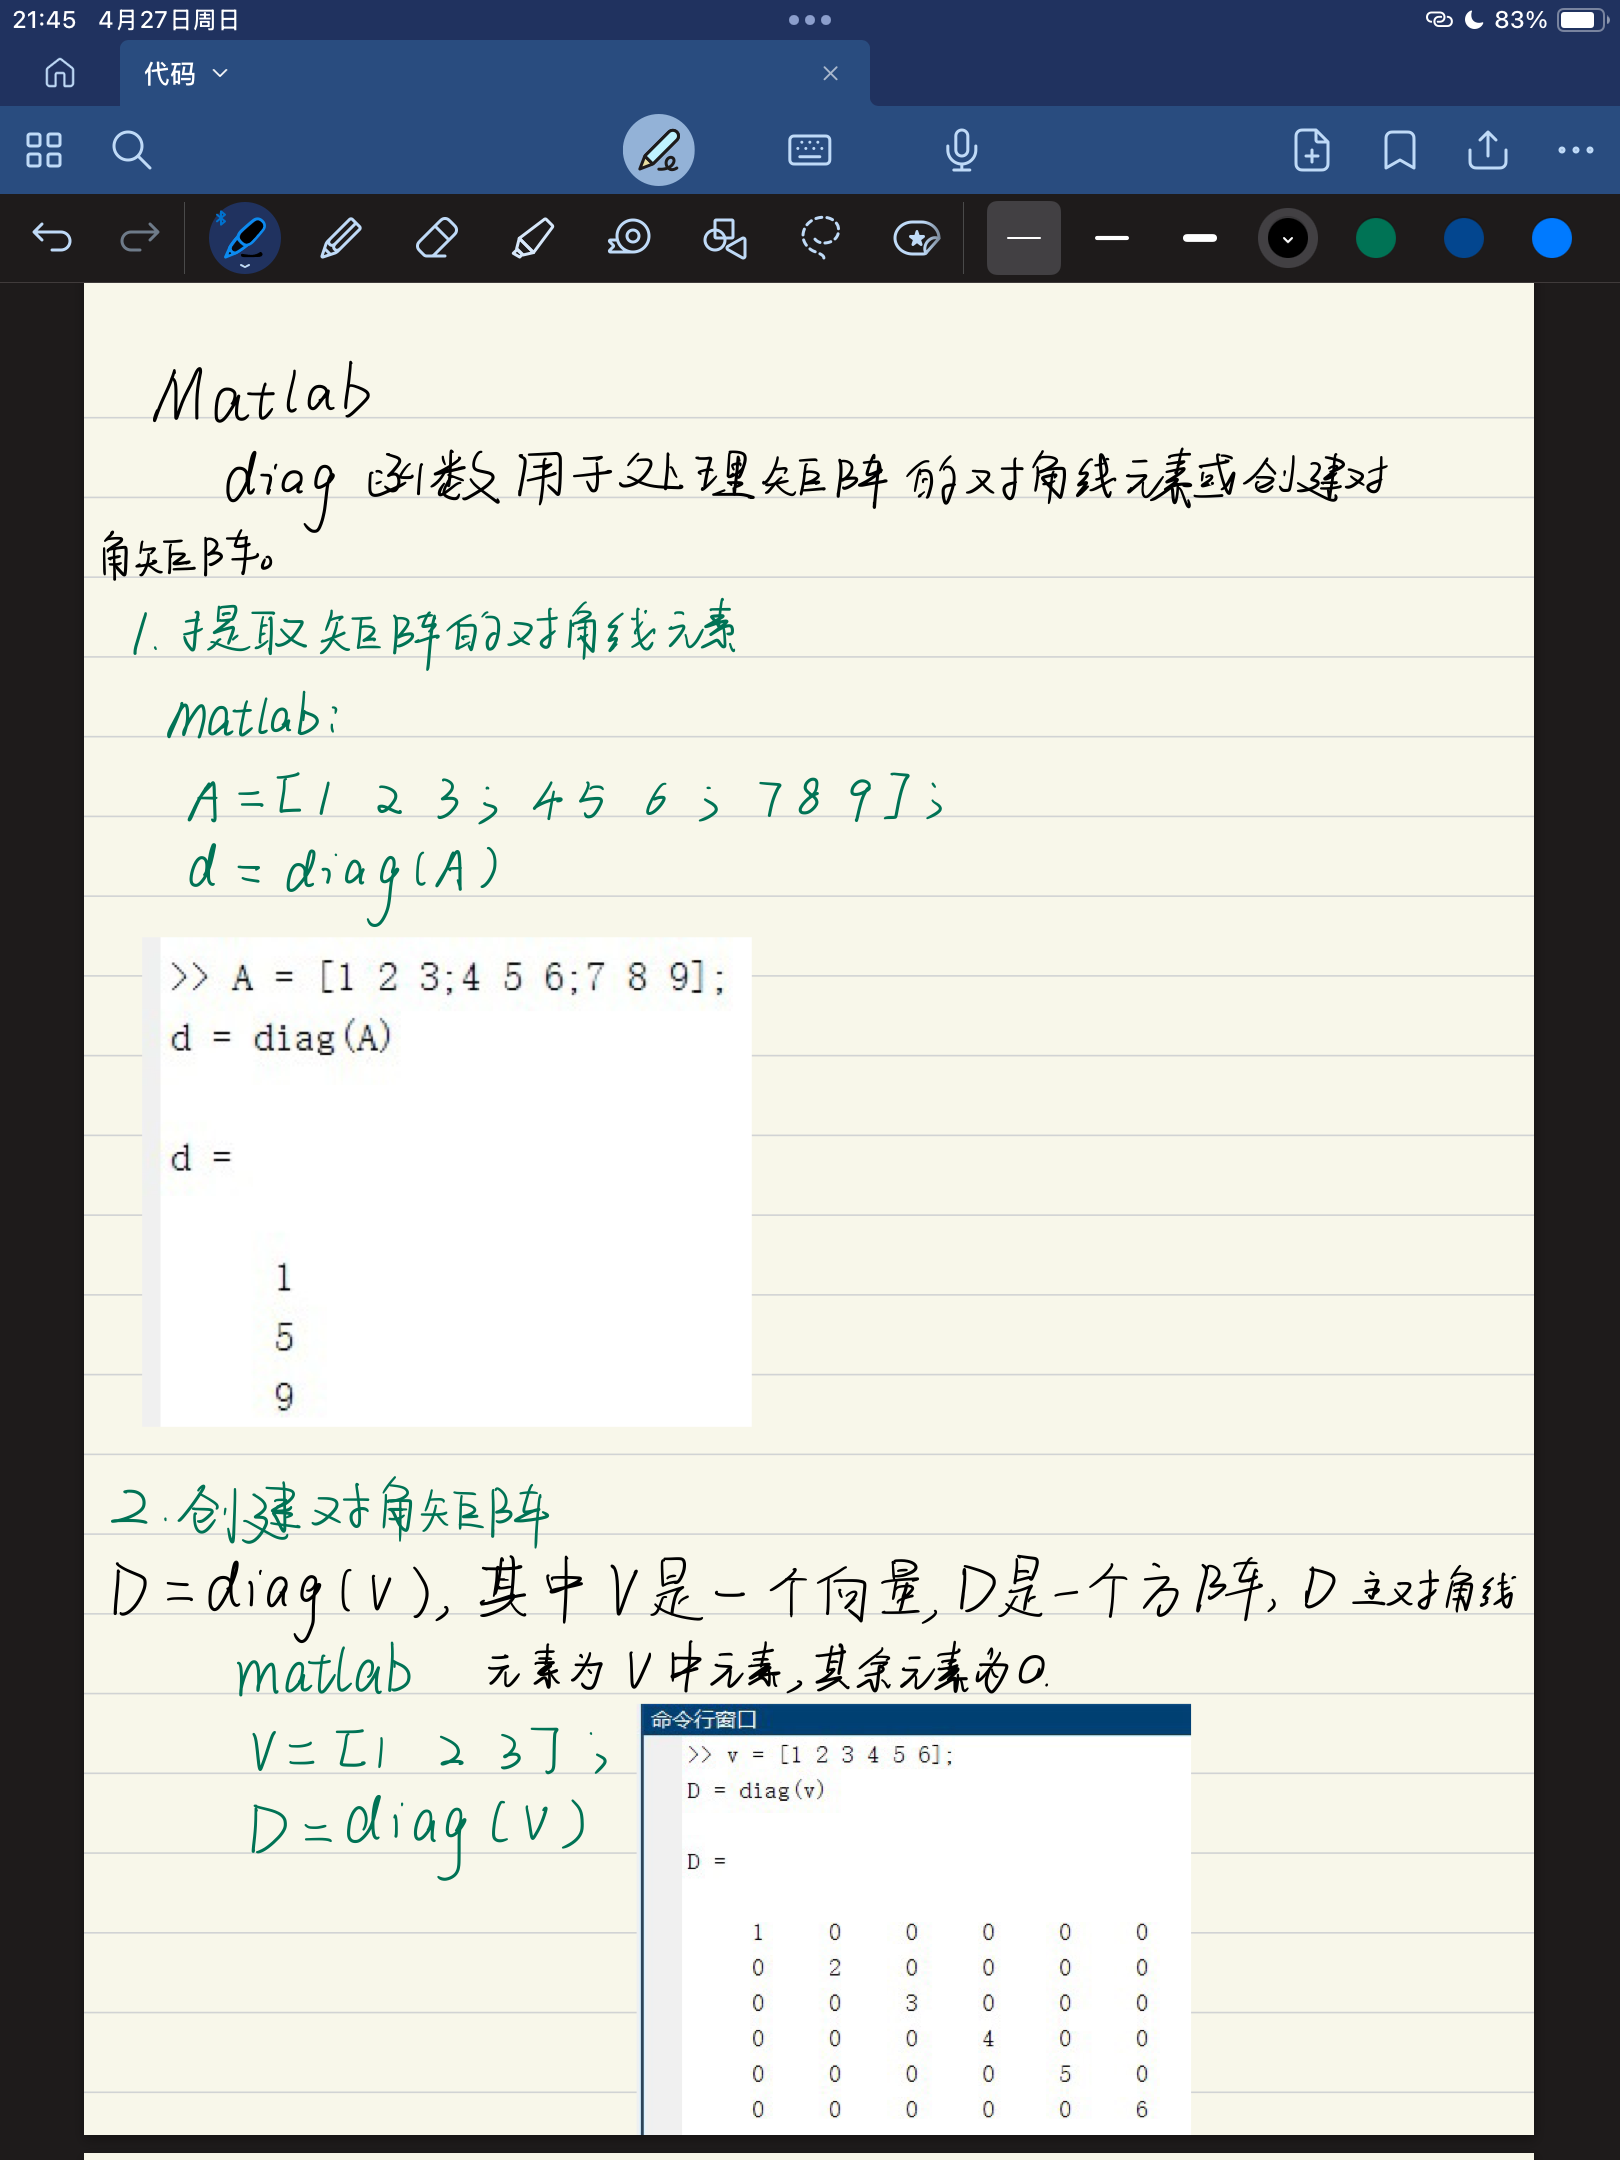 21:45 4月27日周日
83%
代码
Matlab
diag 函数用于处理矩阵的对角线元素或创建对
角矩阵。
1. 提取矩阵的对角线元素
matlab:
A=[1 2 3; 4 5 6; 7 8 9];
d = diag(A)
>> A = [1 2 3;4 5 6;7 8 9];
d = diag(A)
d =
1
5
9
2. 创建对角矩阵
D=diag(V),其中V是一个向量,D是一个方阵,D主对角线
元素为V中元素,其余元素为0.
matlab
V=[1 2 3];
D=diag(V)
命令行窗口
>> v = [1 2 3 4 5 6];
D = diag(v)
D =
1 0 0 0 0 0
0 2 0 0 0 0
0 0 3 0 0 0
0 0 0 4 0 0
0 0 0 0 5 0
0 0 0 0 0 6